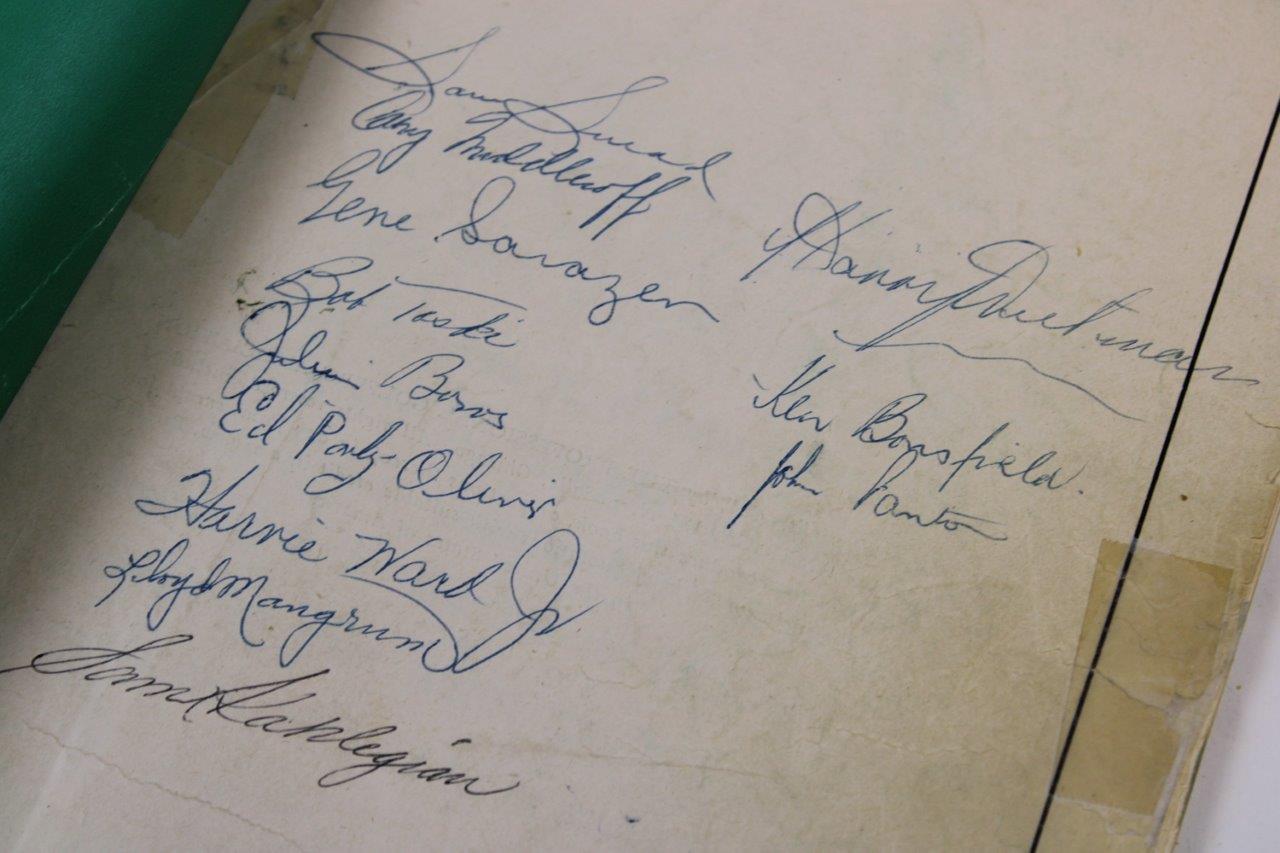 Sam Snead
Cary Middlecoff
Gene Sarazen
Bob Toski
Julius Boros
Ed Porky Oliver
Harvie Ward Jr
Lloyd Mangrum
Sam Kahlegian
Harry Weetman
Ken Bousfield.
John Panton